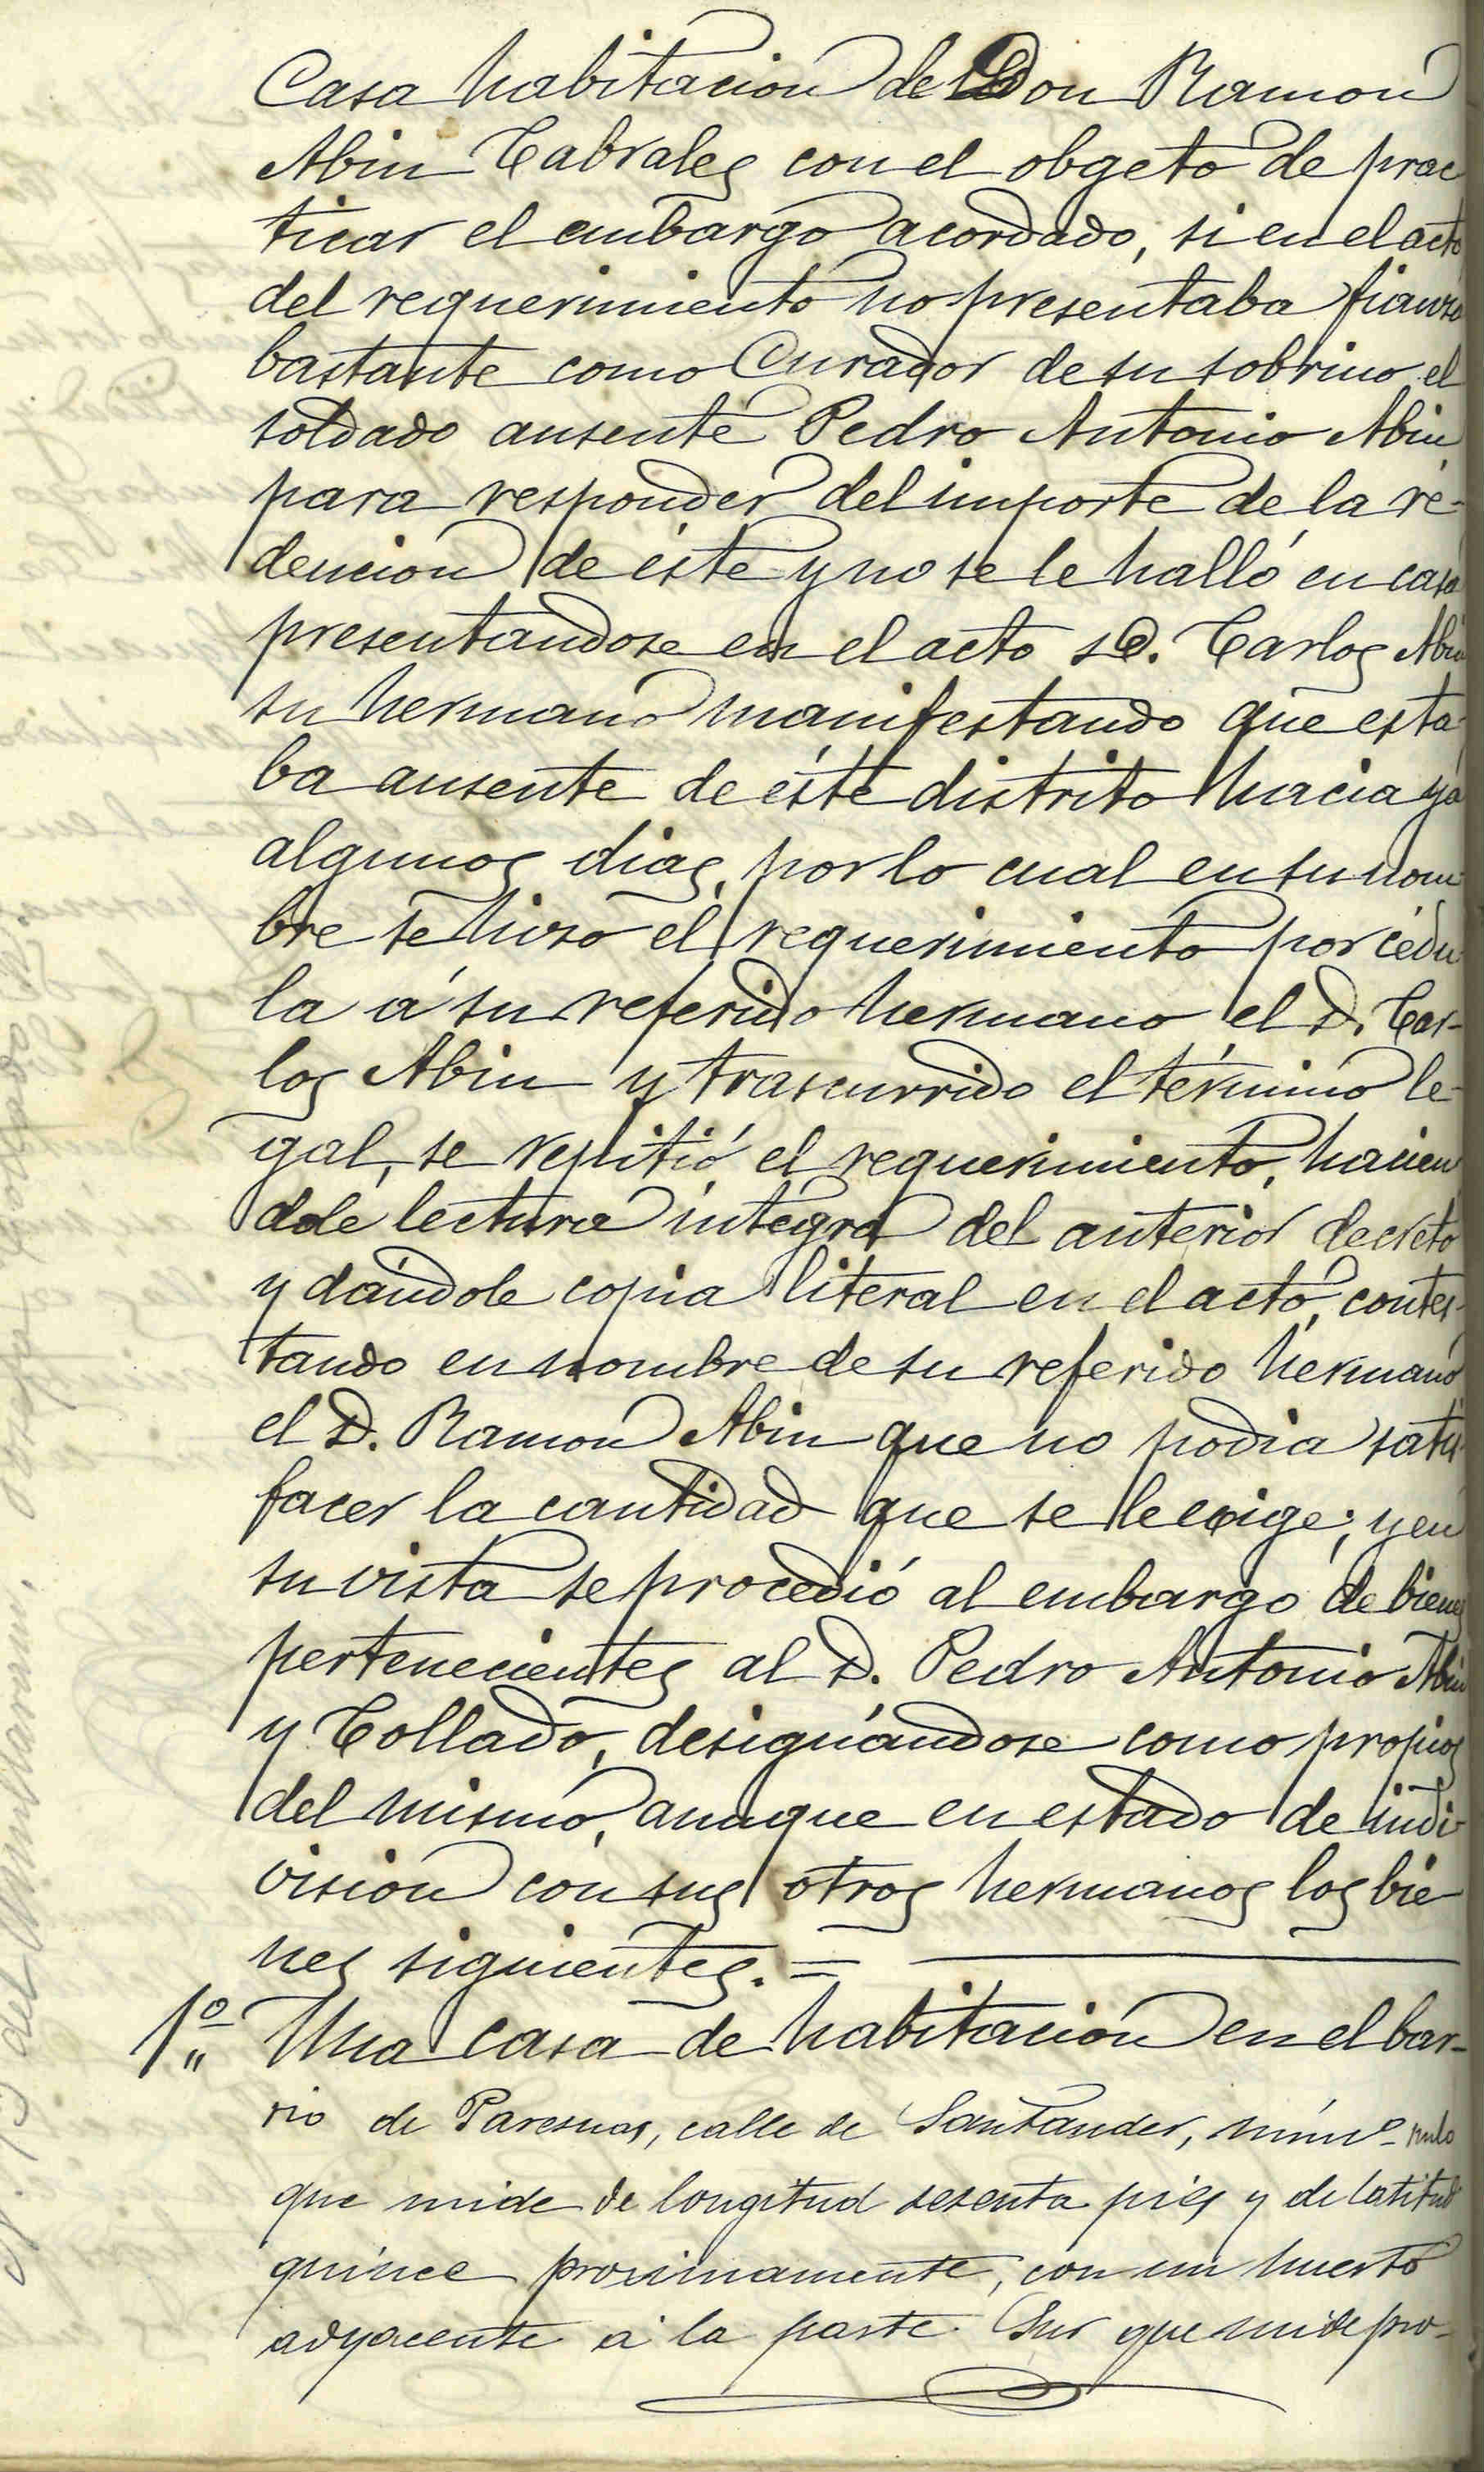 Casa habitacion de Don Ramon
Abin Cabrales con el obgeto de prac
ticar el embargo acordado, si en el acto
del requerimiento no presentaba fianza
bastante como Curador de su sobrino el
soldado ausente Pedro Antonio Abin
para responder del importe de la re-
dencion de éste y no se le halló en casa
presentandose en el acto D. Carlos Abin
su hermano manifestando que esta-
ba ausente de éste distrito hacia ya
algunos dias, por lo cual en su nom
bre se hizo el requerimiento por cédu
la á su referido hermano el D. Car-
los Abin y trascurrido el término le-
gal, se repitió el requerimiento, hacien
dole lectura integra del anterior decreto
y dándole copia literal en el acto, contes-
tando en nombre de su referido hermano
el D. Ramon Abin que no podia satis-
facer la cantidad que se le exige; y en
su vista se procedió al embargo de bienes
pertenecientes al D. Pedro Antonio Abin
y Collado, designándose como propios
del mismo, aunque en estado de indi-
vision con sus otros hermanos los bie
nes siguientes. =
1º Una casa de habitación en el bar-
rio de calle de Santander, númº nulo
que mide de longitud sesenta piés y de latitud
quince proximamente, con un huerto
adyacente á la parte Sur que mide pro-